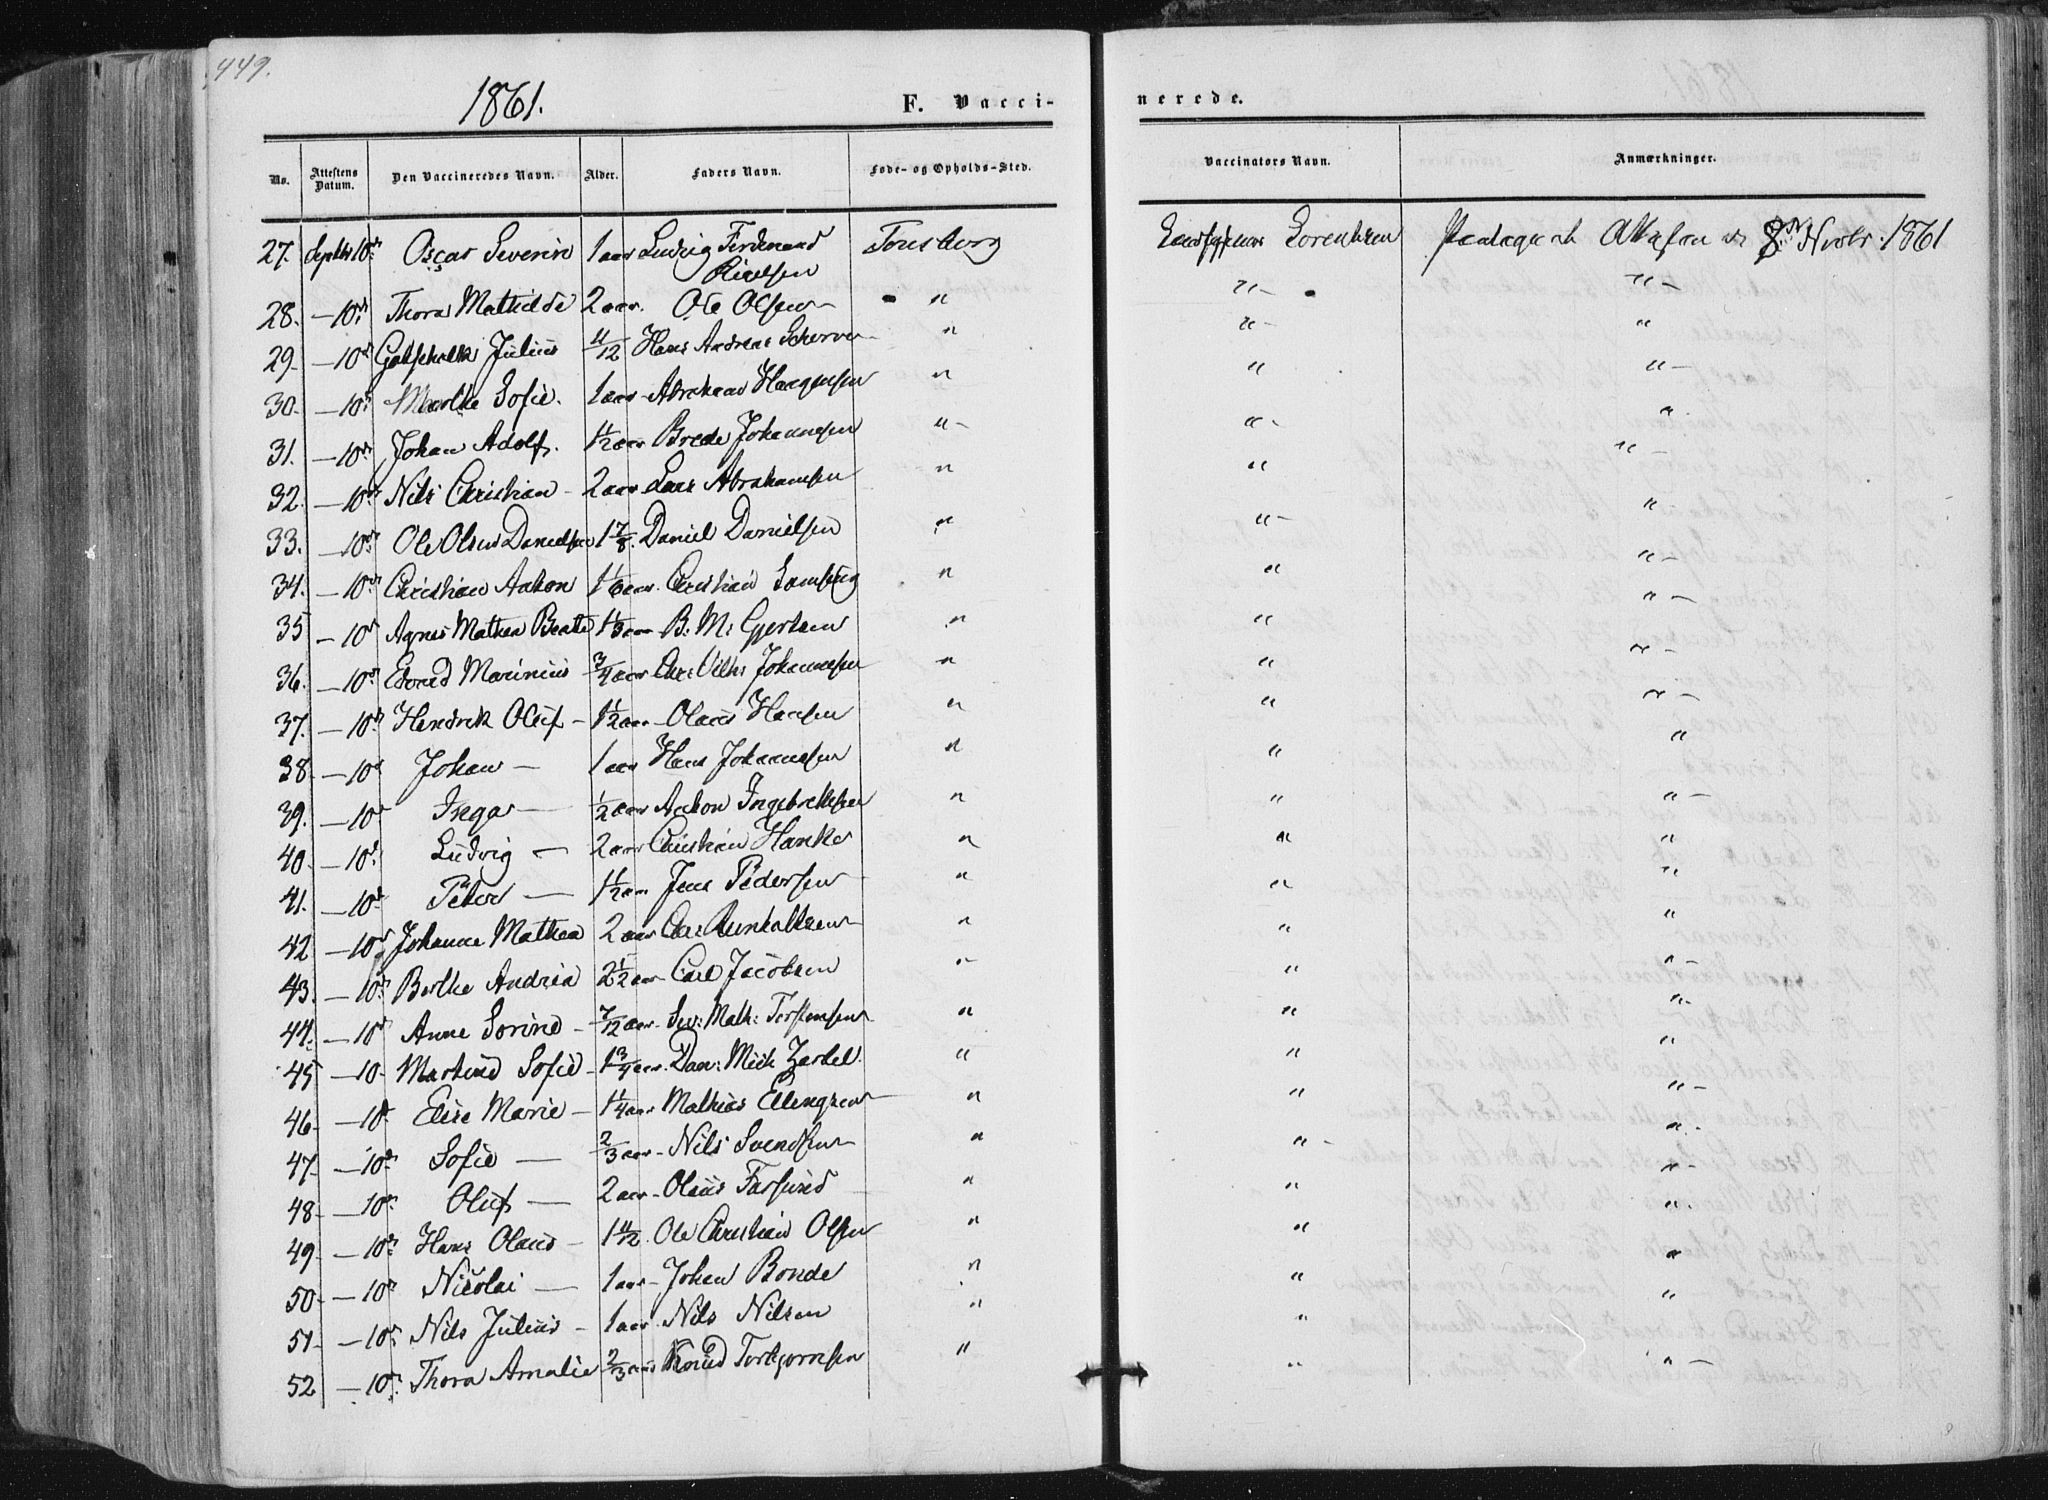 449.
1861.
F. Vacci-
nerede.
No. Attestens Datum. Den Vaccineredes Navn. Alder. Faders Navn. Føde- og Opholds-Sted. Vaccinators Navn. Anmærkninger.
27. Septbr 10de Oscar Severin 1 aar Ludvig Ferdinand Tønsberg Lorentzen 8de Novbr. 1861
28. — 10de Thora Mathilde 2 aar. Ole Olsen " " - " -
29. — 10de Gotschalk Julius 11/12 Hans Andreas Schorven " " - "
30. — 10de Marthe Sofie. 1 aar Abraham Haagensen " " " -
31. — 10de Johan Adolf. 1 1/2 aar Brede Johannesen " - " - "
32. — 10de Nils Christian - 2 aar Lars Abrahamsen " " " -
33. — 10de Ole Olsen Danielsen 1 7/8. Daniel Danielsen " " - " -
34. — 10de Christian Anton 1 1/6 aar. Christian " " " -
35 — 10d Agnes Mathea Beate 1 1/3 aar B: M: Gjertsen " " " -
36. — 10d. Edvard Marinius 3/4 aar Chr: Vilh: Johannesen " " " -
37. — 10d. Hendrik Oluf - 1 1/2 aar - Olaus Hansen " " " -
38 — 10d Johan — 1 aar Hans Johannesen " " "
39. — 10d Inga — 1/2 aar Anton Ingebretsen " " " -
40 — 10d. Ludvig — 2 aar Christian Hanke " " "
41. — 10d. Peter — 1 1/2 aar Jens Pedersen " " "
42 — 10d Johanne Mathea 2 aar Chr: " " "
43. — 10d. Berthe Andrea 2 1/2 aar Carl Jacobsen " " " -
44. — 10d Anne Sorine - 7/12 aar - Sev: Math: Torstensen " " " -
45 — 10 - Martine Sofie - 1 3/4 aar. Dan: Mich " " "
46 — 10d. Elise Marie - 1 1/4 aar Mathias Ellingsen " " " -
47 — 10d. Sofie — 2/3 aar - Nils Svendsen " " - " -
48 — 10d. Oluf — 2 aar - Olaus Farsund " " " -
49 — 10d. Hans Olaus - 1 11/12. Ole Christian Olsen " " "
50 — 10d. Nicolai — 1 aar - Johan Bonde " " "
51 — 10d. Nils Julius - 1 aar. Nils Nilsen " " "
52 — 10d. Thora Amalie 2/3 aar Knud Torbjørnsen " " " -